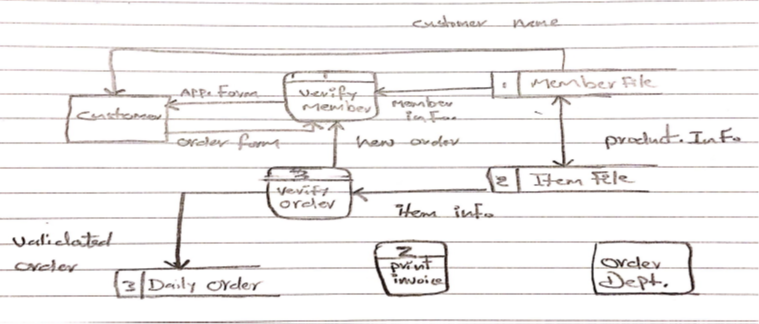 customer name
1
1 Member File
App. Form
verify
member
member
info.
Customer
order form
new order
product. Info.
3
verify
order
2 Item File
item info.
validated
order
2
print
invoice
order
Dept.
3 Daily order